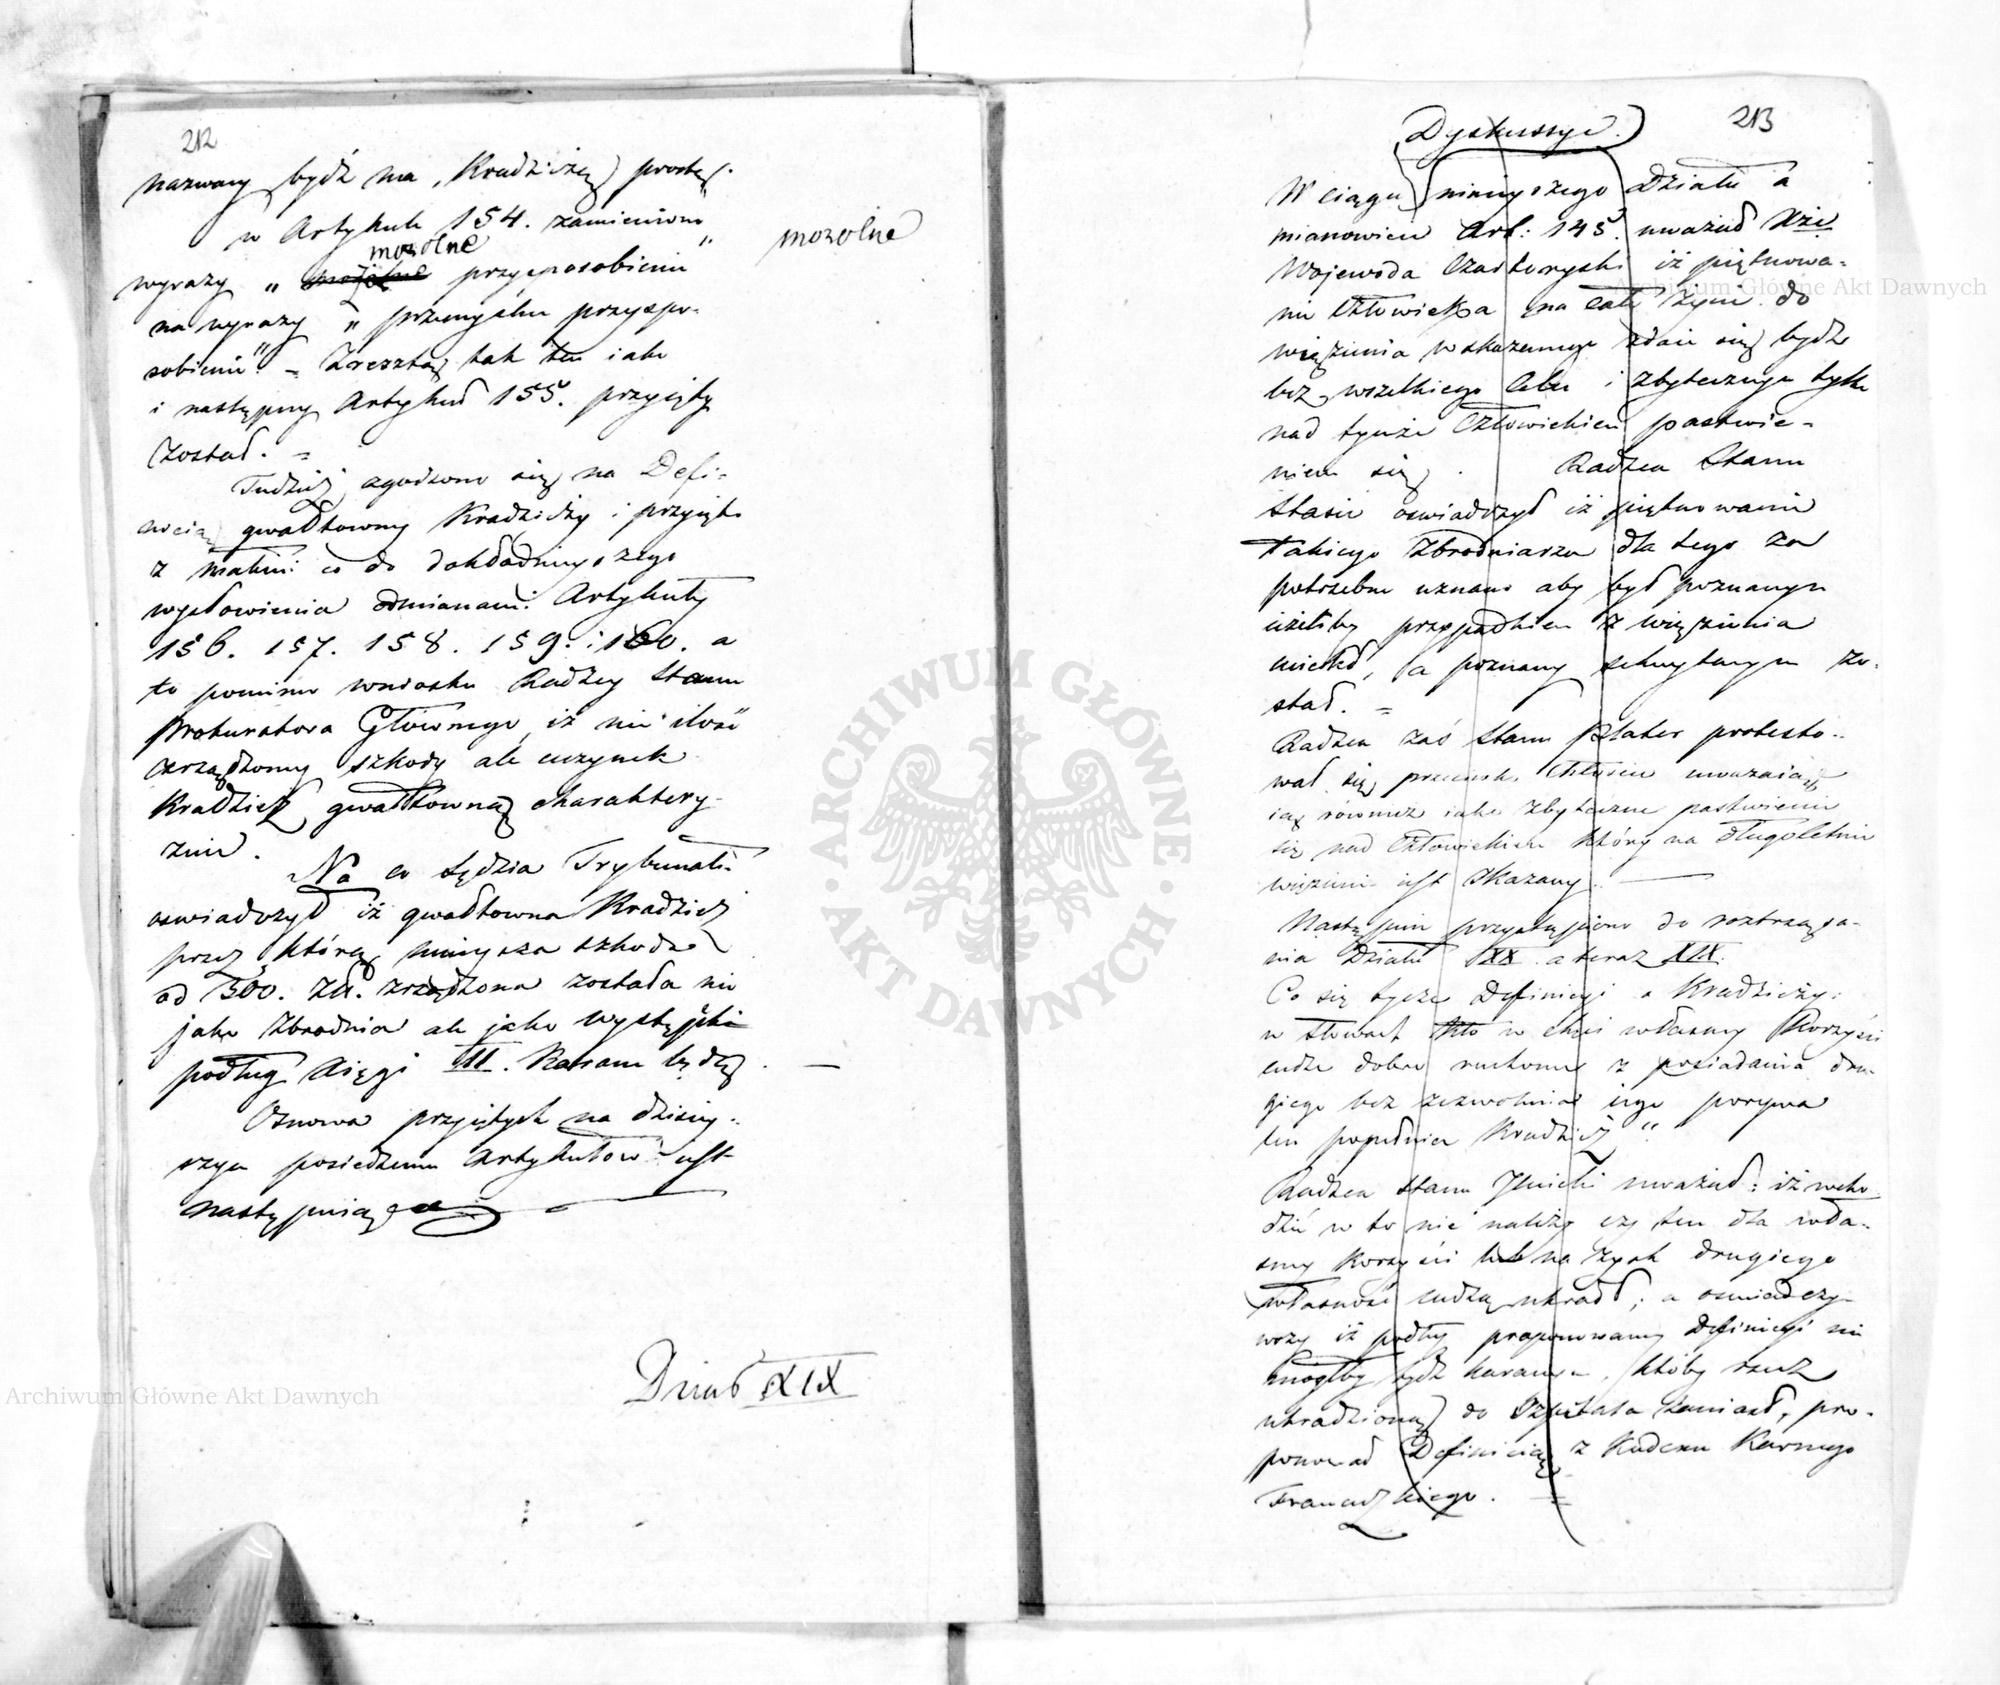 212
nazwany bydź ma „Kradzieżą prostą".
w Artykule 154. zamieniono
mozolne
wyrazy „ przysposobienie"
mozolne
na wyrazy „ przemysłu przyspo-
sobienie" = Zresztą tak ten iako
i następny Artykuł 155. przyięty
został. =
Tudzież zgodzono się na Defi-
nicią gwałtowney Kradzieży i przyięto
z małemi co do dokładnieyszego
wysłowienia odmianami Artykuły
156. 157. 158. 159. i 160. a
to pomimo wniosku Radzcy Stanu
Prokuratora Głównego, iż nie ilość
zrządzoney szkody ale uczynek
Kradzież gwałtowną charaktery-
zuie.
Na co Sędzia Trybunału
oświadczył iż gwałtowna Kradzież
przez którą mnieysza szkoda
od 300. Złł. zrządzona została nie
jako Zbrodnia ale jako występek
podług Xięgi II. Karane będą. —
Osnowa przyiętych na dzisiey-
szym posiedzeniu Artykułów iest
następuiąca
Dział XIX
213
Dyskussye.
W ciągu ninieyszego Działu a
mianowicie Art: 145. uważał Xże
Wojewoda Czartoryski iż piętnowa-
nie Człowieka na całe życie do
więzienia wskazanego zdaie się bydź
bez wszelkiego celu i zbytecznym tylko
nad tymże Człowiekiem pastwie-
niem się. Radzca Stanu
Stasic oświadczył iż piętnowanie
takiego Zbrodniarza dla tego za
potrzebne uznano aby był poznanym
ieżeliby przypadkiem z więzienia
uciekł, a poznany schwytanym zo-
stał. =
Radzca zaś Stanu Plater protesto-
wał się przeciwko Chłoście uważaiąc
ią również iako zbyteczne pastwienie
się nad Człowiekiem który na długoletnie
więzienie iest skazany. —
Następnie przystąpiono do roztrząsa-
nia Działu XX. a teraz XIX.
Co się tycze Definicyi o Kradzieży:
w słowach Kto w chęci własney Korzyści
cudze dobro ruchome z posiadania dru-
giego bez zezwolenia iego porywa
ten popełnia Kradzież".
Radzca Stanu uważał: iż wcho-
dzić w to nie należy czy ten dla wła-
sney korzyści lub na zysk drugiego
własność cudzą ukradł; a oświadczy-
wszy iż podług proponowaney Definicyi nie
mógłby bydź karanym, któby rzecz
ukradzioną do Szpitala zaniósł, pro-
ponował Definicią z Kodexu Karnego
Francuzkiego. =
Archiwum Główne Akt Dawnych
Archiwum Główne Akt Dawnych
ARCHIWUM GŁÓWNE
AKT DAWNYCH